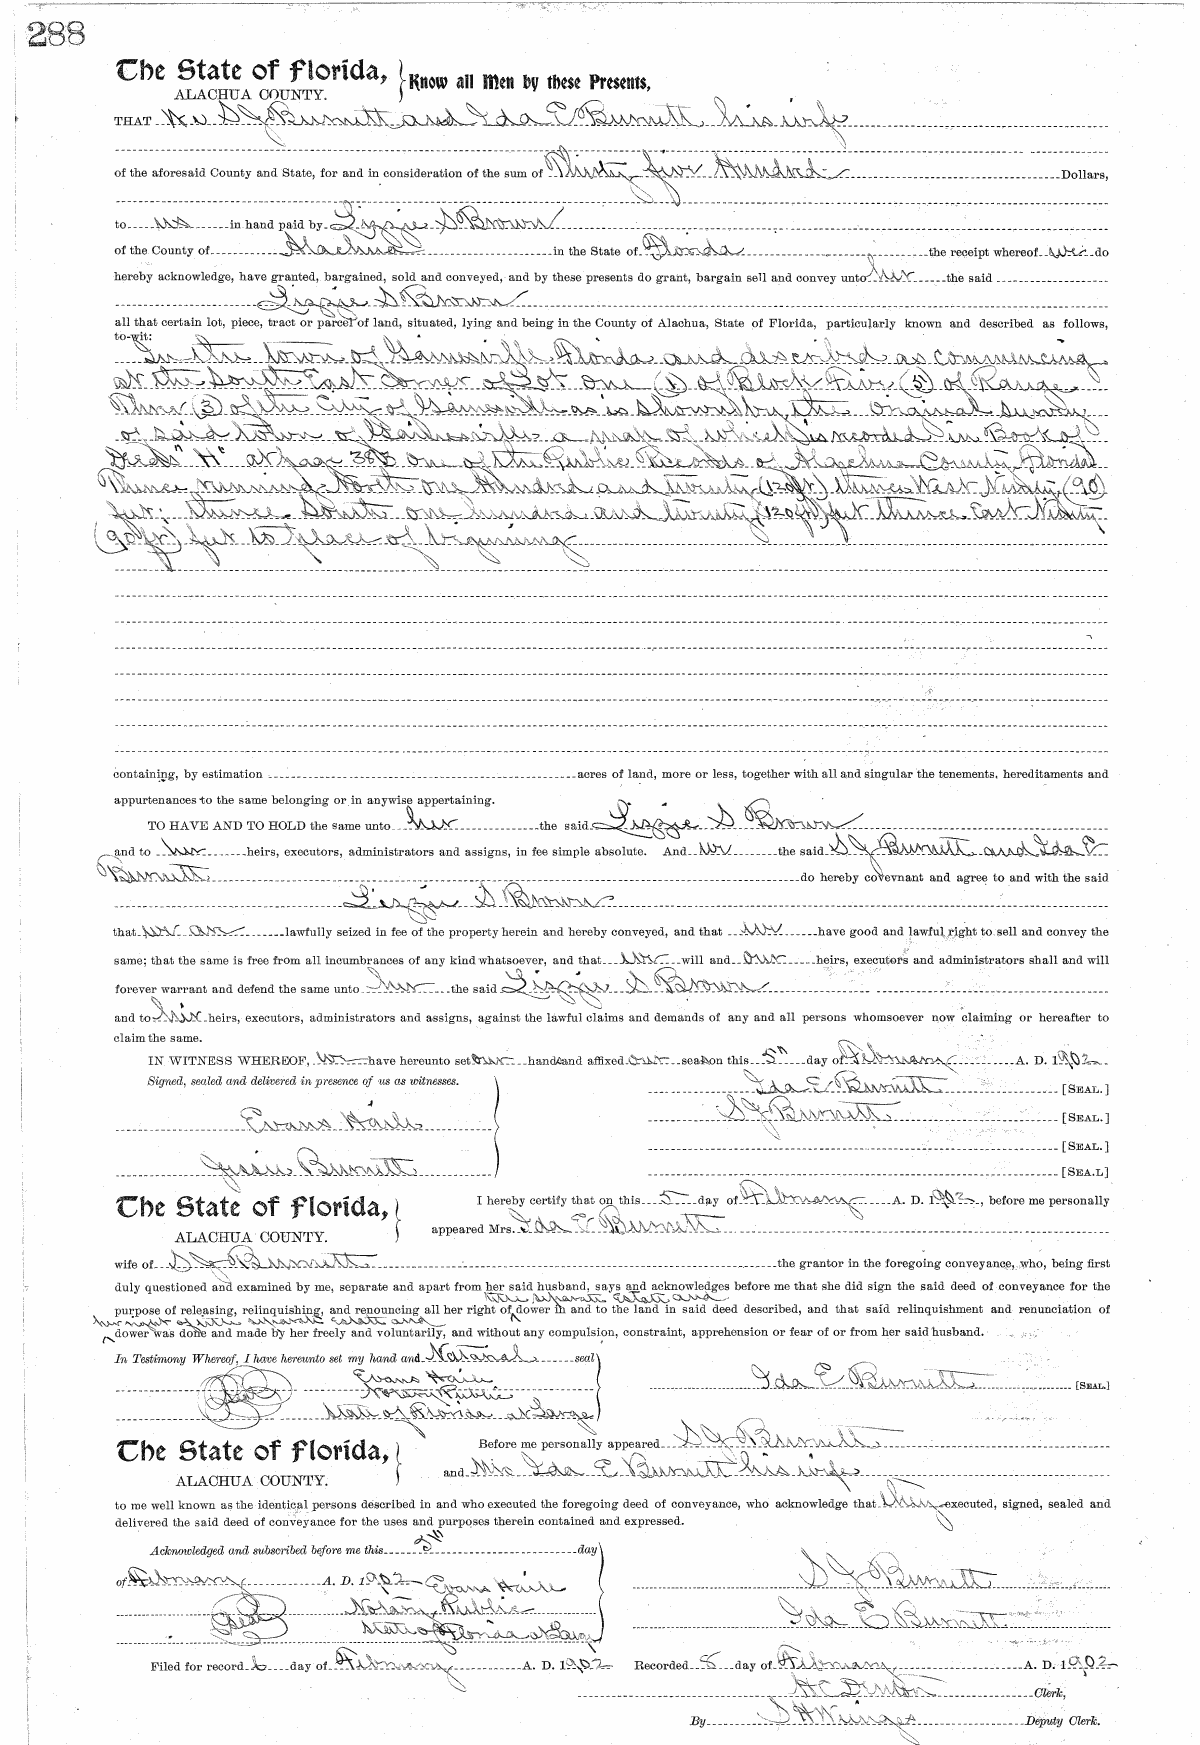 288
The State of Florida,
ALACHUA COUNTY.
Know all Men by these Presents,
THAT We S J Burnett and Ida E Burnett his wife
of the aforesaid County and State, for and in consideration of the sum of Thirty five Hundred Dollars,
to us in hand paid by Lizzie S Brown
of the County of Alachua in the State of Florida the receipt whereof we do
hereby acknowledge, have granted, bargained, sold and conveyed, and by these presents do grant, bargain sell and convey unto her the said
Lizzie S Brown
all that certain lot, piece, tract or parcel of land, situated, lying and being in the County of Alachua, State of Florida, particularly known and described as follows,
to-wit:
In the town of Gainesville Florida and described as commencing
at the South East Corner of Lot One (1) of Block Five (5) of Range
Three (3) of the City of Gainesville as is shown by the Original survey
of said town of Gainesville a map of which is recorded in Book of
Deeds "H" at page 383 one of the Public Records of Alachua County Florida
Thence running North one Hundred and twenty (120ft) thence West Ninety (90)
feet; thence South one hundred and twenty (120ft) feet thence East Ninety
(90ft) feet to place of beginning
containing, by estimation acres of land, more or less, together with all and singular the tenements, hereditaments and
appurtenances to the same belonging or in anywise appertaining.
TO HAVE AND TO HOLD the same unto her the said Lizzie S Brown
and to her heirs, executors, administrators and assigns, in fee simple absolute. And we the said S J Burnett and Ida E
Burnett do hereby covevnant and agree to and with the said
Lizzie S Brown
that we are lawfully seized in fee of the property herein and hereby conveyed, and that we have good and lawful right to sell and convey the
same; that the same is free from all incumbrances of any kind whatsoever, and that we will and our heirs, executors and administrators shall and will
forever warrant and defend the same unto her the said Lizzie S Brown
and to his heirs, executors, administrators and assigns, against the lawful claims and demands of any and all persons whomsoever now claiming or hereafter to
claim the same.
IN WITNESS WHEREOF, we have hereunto set our hands and affixed our seals on this 5th day of February A. D. 1902
Signed, sealed and delivered in presence of us as witnesses.
Ida E Burnett [SEAL.]
S J Burnett [SEAL.]
Evans Haile
[SEAL.]
Jessie Burnett
[SEA.L]
The State of Florida,
ALACHUA COUNTY.
I hereby certify that on this 5 day of February A. D. 1902, before me personally
appeared Mrs. Ida E Burnett
wife of S J Burnett the grantor in the foregoing conveyance, who, being first
duly questioned and examined by me, separate and apart from her said husband, says and acknowledges before me that she did sign the said deed of conveyance for the
title separate Estate and
purpose of releasing, relinquishing, and renouncing all her right of dower in and to the land in said deed described, and that said relinquishment and renunciation of
her right of title separate Estate and
dower was done and made by her freely and voluntarily, and without any compulsion, constraint, apprehension or fear of or from her said husband.
In Testimony Whereof, I have hereunto set my hand and Notarial seal
Evans Haile
Seal Notary Public
State of Florida at Large
Ida E Burnett [SEAL.]
The State of Florida,
ALACHUA COUNTY.
Before me personally appeared S J Burnett
and Mrs Ida E Burnett his wife
to me well known as the identical persons described in and who executed the foregoing deed of conveyance, who acknowledge that they executed, signed, sealed and
delivered the said deed of conveyance for the uses and purposes therein contained and expressed.
Acknowledged and subscribed before me this 5th day
of February A. D. 1902 Evans Haile
Notary Public
Seal State of Florida at Large
S J Burnett
Ida E Burnett
Filed for record 6 day of February A. D. 1902 Recorded 8 day of February A. D. 1902
H C Denton Clerk,
By S H Wienges Deputy Clerk.